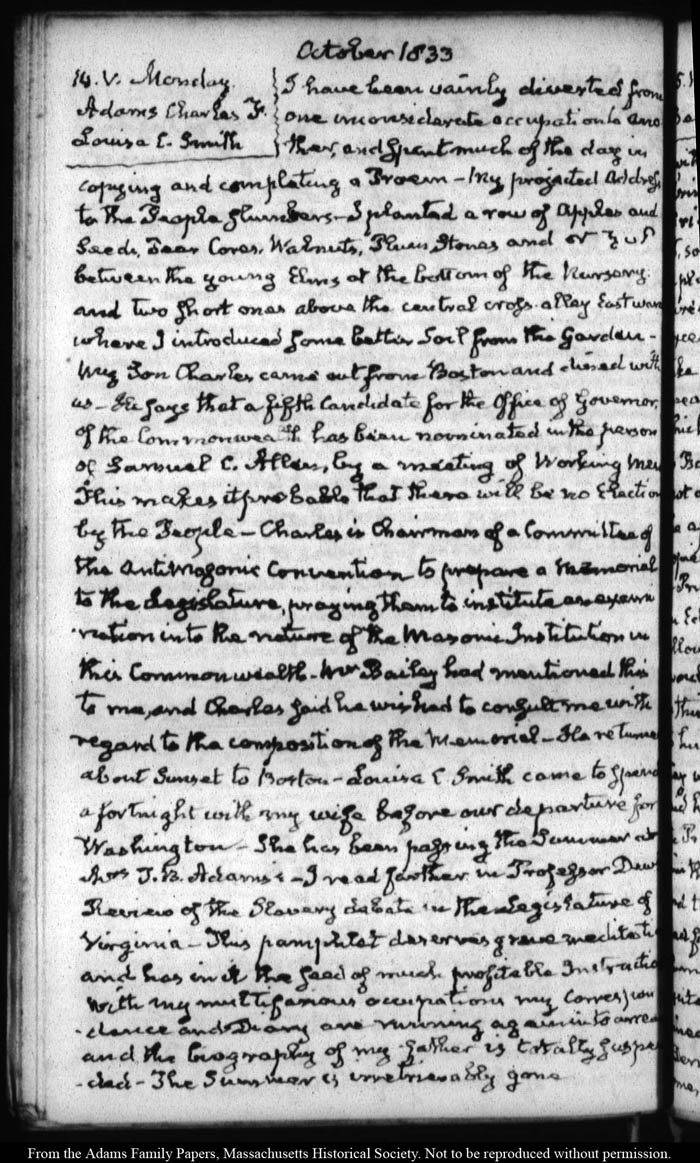 October 1833
14. V. Monday.
Adams Charles F.
Louisa C. Smith
I have been vainly diverted from
one inconsiderate occupation to ano
ther, and spent much of the day in
copying and completing a Proem - My projected Address
to the People slumbers - I planted a row of Apples and
Seeds, Pear Cores, Walnuts, Plum Stones and
between the young Elms at the bottom of the Nursery.
and two short ones above the central cross-alley Eastward
where I introduced some better Soil from the Garden -
My Son Charles came out from Boston and dined with
us - He says that a fifth Candidate for the Office of Governor
of the Commonwealth has been nominated in the person
of Samuel C. Allen, by a meeting of Working Men
This makes it probable that there will be no Election
by the People - Charles is Chairman of a Committee of
the AntiMasonic Convention to prepare a Memorial
to the Legislature, praying them to institute an exam
ination into the nature of the Masonic Institution in
this Commonwealth - Mr Bailey had mentioned this
to me, and Charles said he wished to consult me with
regard to the composition of the Memorial - He returned
about Sunset to Boston - Louisa C. Smith came to spend
a fortnight with my wife before our departure for
Washington - She has been passing the Summer at
Mrs T. B. Adams's - I read further in Professor Dew's
Review of the Slavery debate in the Legislature of
Virginia - This pamphlet deserves grave meditation
and has in it the seed of much profitable Instruction
With my multifarious occupations my Correspon
-dence and Diary are running again into arrear
and the biography of my father is totally suspen
-ded - The Summer is irretrievably gone
From the Adams Family Papers, Massachusetts Historical Society. Not to be reproduced without permission.